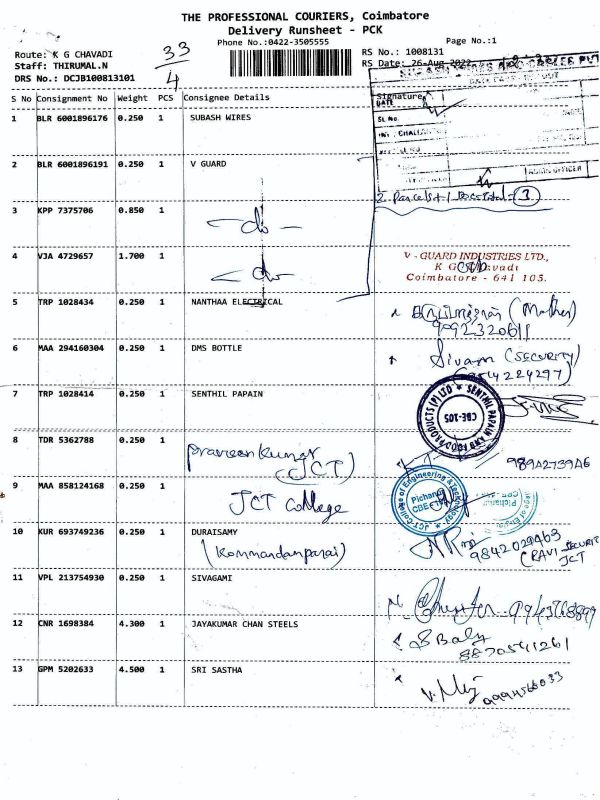 THE PROFESSIONAL COURIERS, Coimbatore
Delivery Runsheet - PCK
Phone No.:0422-3505555
Page No.:1
Route: K G CHAVADI
33/4
RS No.: 1008131
Staff: THIRUMAL.N
RS Date: 26-Aug-2022
DRS No.: DCJB100813101
S No Consignment No Weight PCS Consignee Details
Signature
DATE
SL No.
1 BLR 6001896176 0.250 1 SUBASH WIRES
2 BLR 6001896191 0.250 1 V GUARD
2 Parcels + 1 Docs Total = 3
3 KPP 7375706 0.850 1 - do -
4 VJA 4729657 1.700 1 - do
V - GUARD INDUSTRIES LTD.,
K G Chavadi
Coimbatore - 641 105.
5 TRP 1028434 0.250 1 NANTHAA ELECTRICAL
(Mother)
6 MAA 294160304 0.250 1 DMS BOTTLE Sivam (SECURITY)
7 TRP 1028414 0.250 1 SENTHIL PAPAIN
SENTHIL PAPAIN AND FOOD PRODUCTS (P) LTD
CBE-105
8 TDR 5362788 0.250 1 Praveen Kumar
(JCT)
9 MAA 858124168 0.250 1 JCT College
JCT College of Engineering & Technology
Pichanur
10 KUR 693749236 0.250 1 DURAISAMY
(Kommandamparai)
9842029463
(RAVI SECURITY
JCT
11 VPL 213754930 0.250 1 SIVAGAMI
12 CNR 1698384 4.300 1 JAYAKUMAR CHAN STEELS S Baly
8870541261
13 GPM 5202633 4.500 1 SRI SASTHA